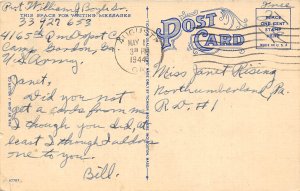 Pvt William J Boyle Jr.
THIS SPACE FOR WRITING MESSAGES
13 127 653
4165th Q m Depot Co
Camp Gordon, Ga
U.S. Army
Janet,
Did you not
get a cards from me
I though you did, at
least I though I address
one to you.
Bill.
AUGUSTA
MAY 1
1944
GA
POST
CARD
Free
PLACE
ONE CENT
STAMP
HERE
Miss Janet Rising
Northumberland Pa.
R.D. #1